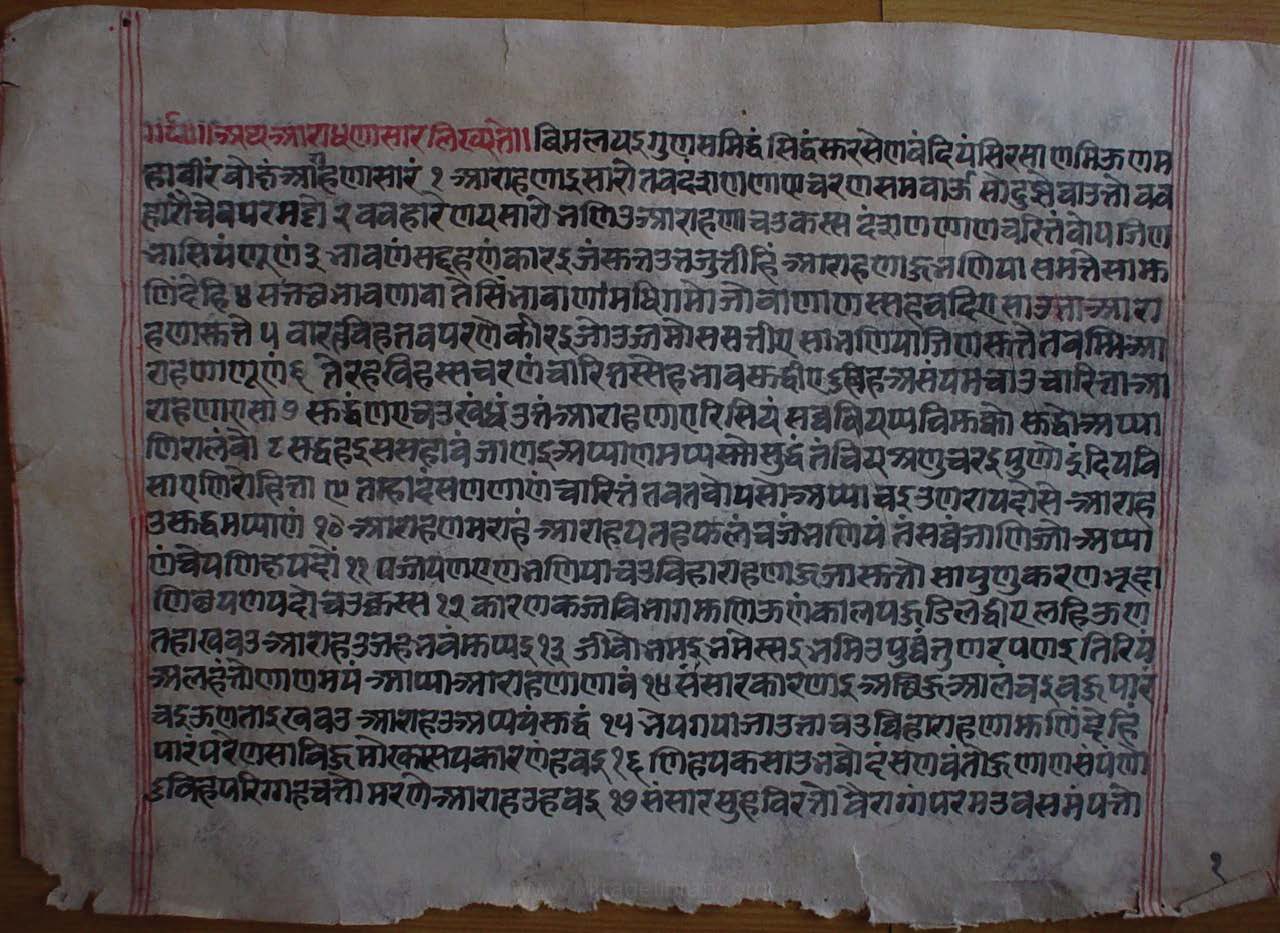 ॥र्द०॥ अथ आराधणासार लिख्यते॥ विमलयइगुणसमिद्धं सिद्धं सुरसेणवंदियं सिरसा णमिऊण म
हावीरं वोछं आराहणासारं १ आराहणाइसारो तवदंसणणाणचरणसमवाऊ सो दुभ्रेवो उत्तो वव
हारो चेव परमट्ठो २ ववहारेण य सारो भणिउ आराहणाचउकस्स दंसणणाणचरित्तं तवो य जिण
भासियं णूणं ३ भावणं सद्दहणं कारइ जं सुत्तउत्तजुत्तीहिं आराहणाहु भणिया सम्मत्ते सा मु
णिंदेहि ४ सत्तच्चभावणा वा तेसिं भावाणमधिगमो जो वाणाणस्स हवदि एसा उत्ता आरा
हणा सुत्ते ५ वारहविहतवयरणे कीरइ जो उजमो ससत्तीए सा भणिया जिणसुत्ते तवम्मि आ
राहणा णूणं ६ तेरहविहस्स चरणं चारित्तस्सेह भावसुद्धीए दुविहअसंयमचाउ चारित्ता आ
राहणा एसा ७ सुद्धंणए चउखंधं उत्तं आराहणा एरिसियं सव्ववियप्पविमुक्को सुद्धो अप्पा
णिरालंवो ८ सद्दहइ ससहावं जाणइ अप्पाणमप्पसो सुद्धं तं चिय अणुचरइ पुणो इंदियवि
सए णिरोहित्ता ९ तम्हा दंसणणाणं चारित्तं तव तवो य सो अप्पा चइउण रायदोसे आराह
उ सुद्धमप्पाणं १० आराहणमराहं आराहय तह फलं च जं भणियं तं सव्वं जाणिजो अप्पा
णं चेय णिछयदो ११ पजायणएण भणिया चउविहाराहणा हु जा सुत्ते सा पुणु करणभूदा
णिछयणयदो चउक्कस्स १२ कारणकजविभागं मुणिऊणं कालपहुडिलद्धीए लहिऊण
तहा खवउ आराहउ जह भवं मुप्पइ १३ जीवो भमइ भमेस्सइ भमिउ पुव्वं तु णरयणइ तिरियं
अलहंतो णाणमयं आप्पा आराहणा णावं १४ संसारकारणाइ अच्छिहु आलंवइ वहु पारं
चइऊण ताइ खवउ आराहउ अप्पयं सुद्धं १५ भेयगया जा उत्ता चउविहाराहणा मुणिंदेहिं
पारंपरेण सा वि हु मोक्खस्स य कारणं हवइ १६ णिहयकसाउ भव्वो दंसणवंतो हु णाणसंपंणो
दुविहपरिग्गहचत्तो मरणे आराहउ हवइ १७ संसारसुहविरत्तो वैरागं परमउवसमं पत्तो
१